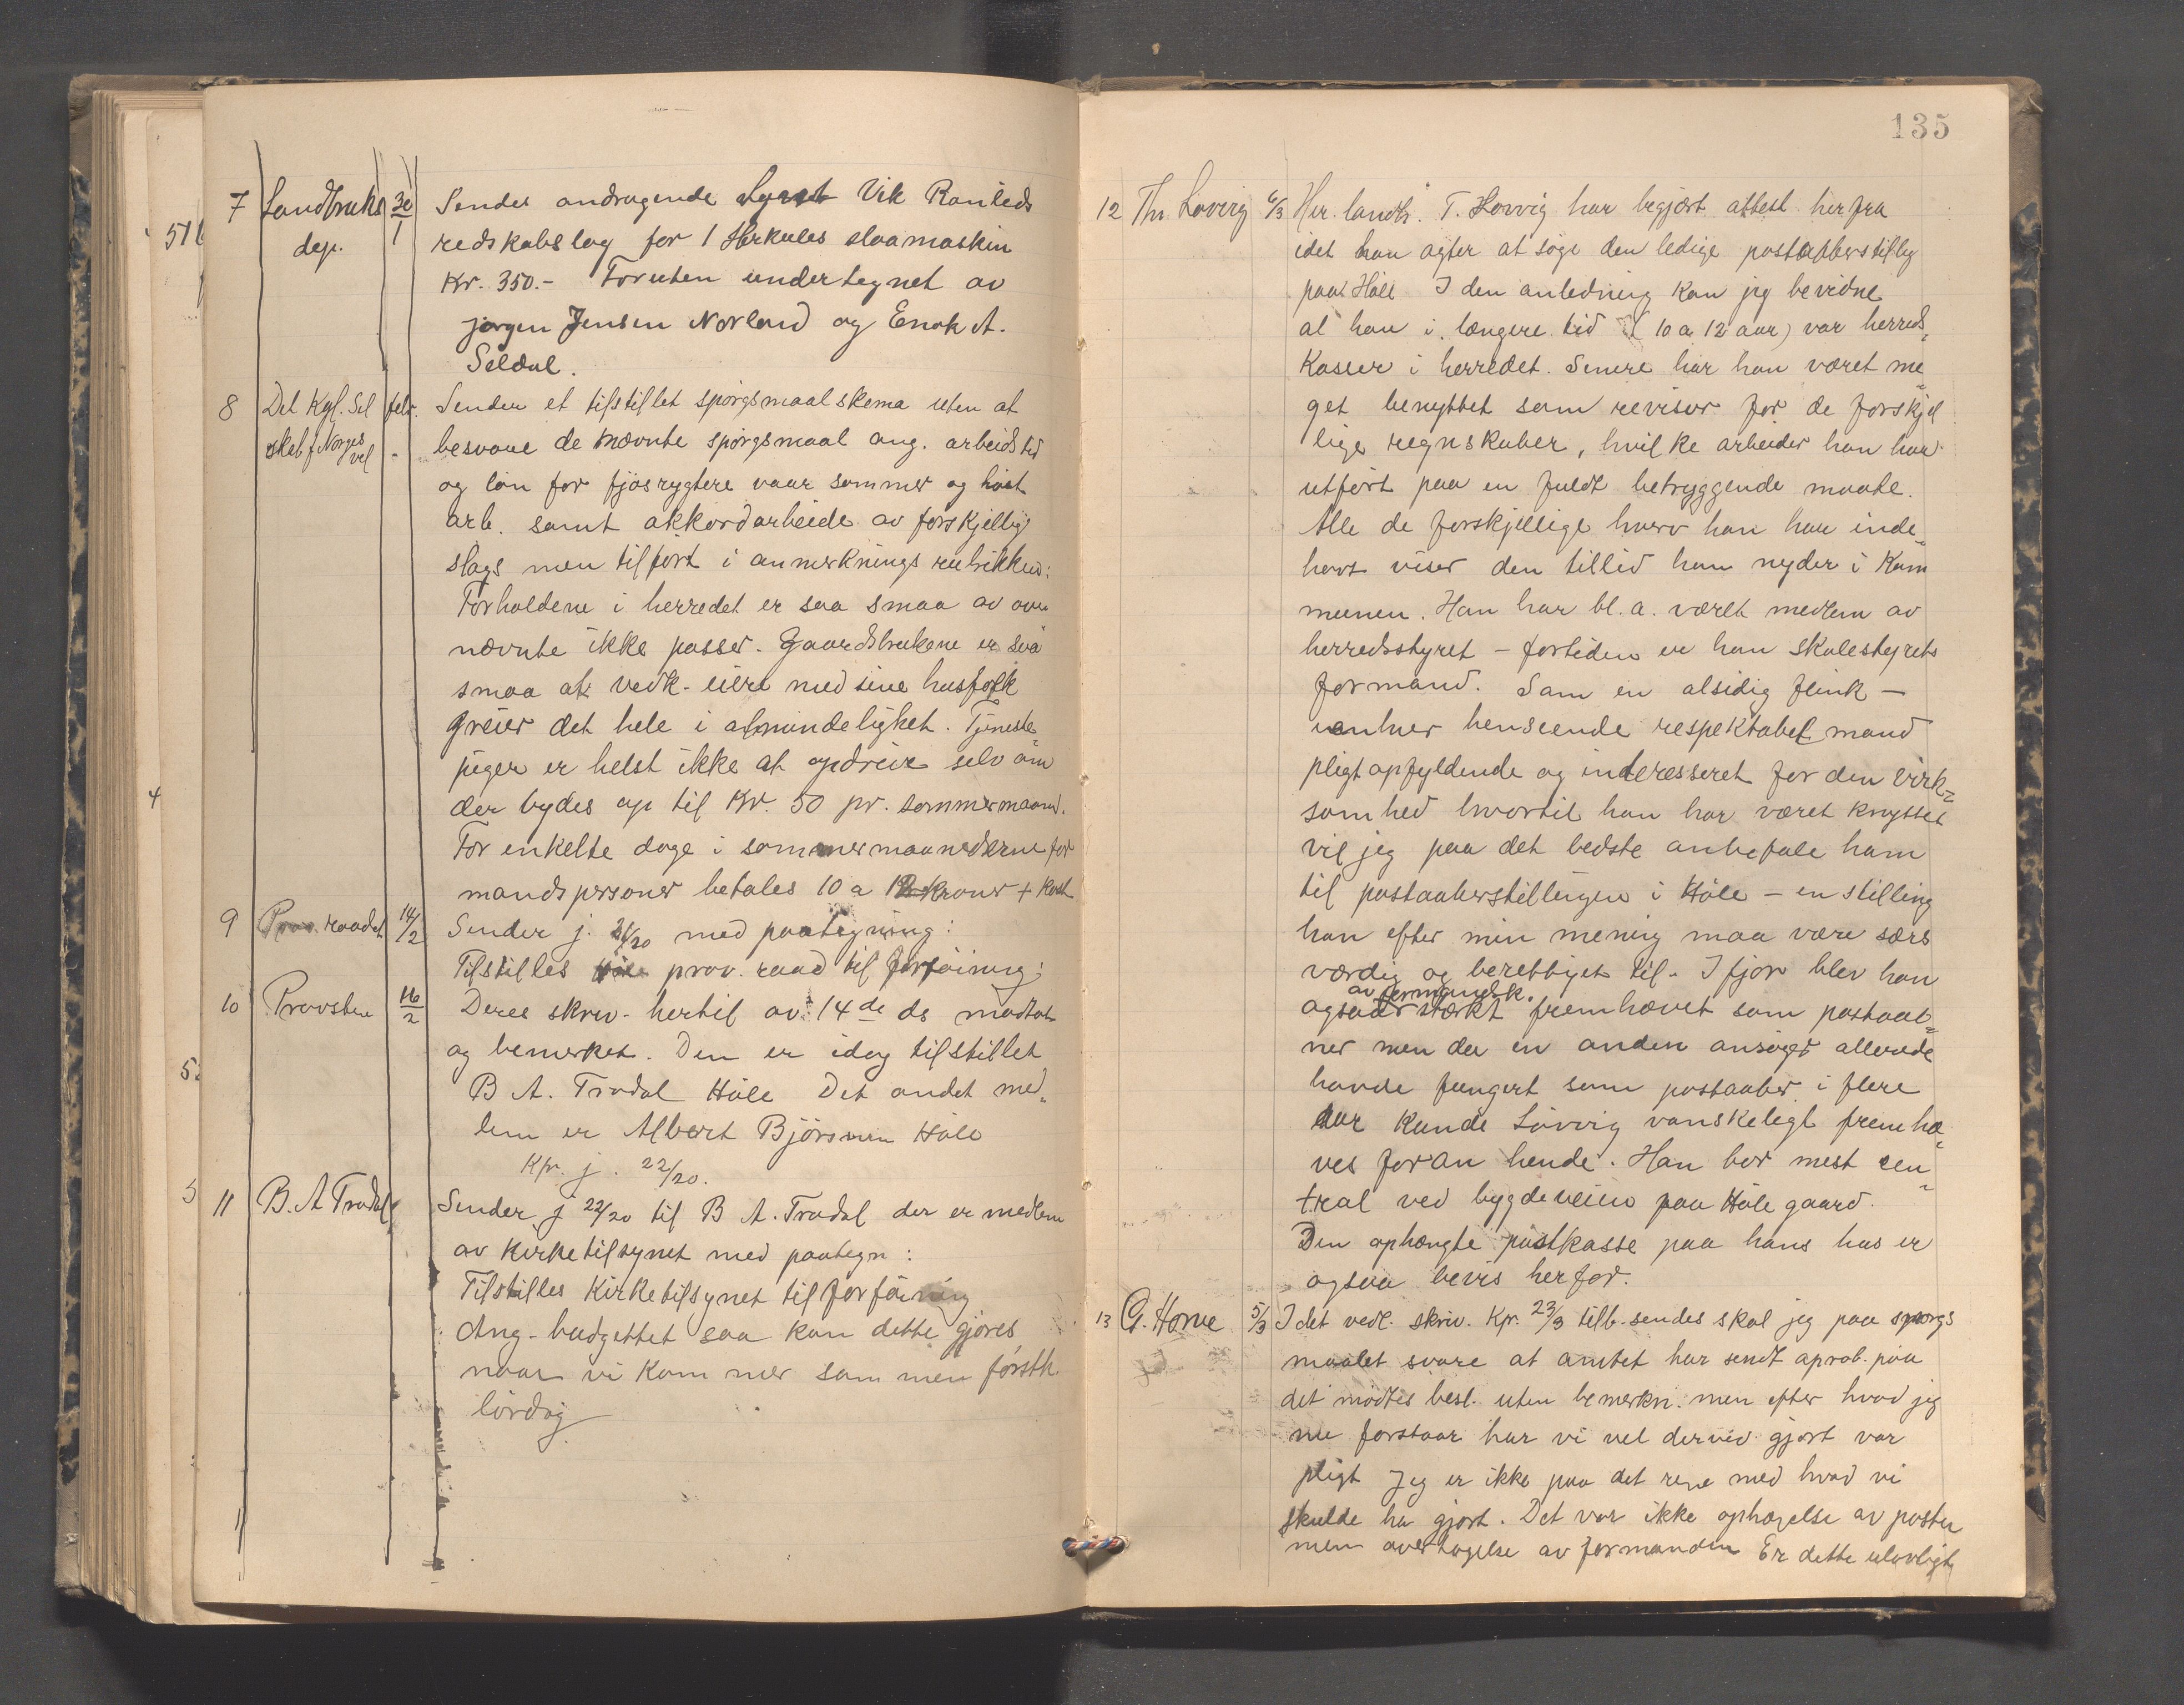 7 Landbruks dep. 30/1 Sender andragende Vik Ranleds
redskabslag for 1 Herkules slaamaskin
Kr. 350.- Foruten undertegnet av
Jørgen Jensen Norland og Enok A.
Seldal.
8 Det Kgl. Sel skab f Norges vel febr. Sender et tilstillet spørgsmaalskema uten at
besvare de nævnte spørgsmaal ang. arbeidstid
og løn for fjøsrygtere vaar sommer og høst
arb. samt akkordarbeide av forskjellig
slags men tilført i anmerknings rubrikken:
Forholdene i herredet er saa smaa av oven
nævnte ikke passer. Gaardsbrukene er saa
smaa at vedk. eiere med sine husfolk
greier det hele i almindelighet. Tjeneste
piger er helst ikke at opdrive selv om
der bydes op til Kr. 50 pr. sommermaaned.
For enkelte dage i sommermaanederne for
mandspersoner betales 10 a 12 kroner + kost
9 Prov. raadet 14/2 Sender j. 21/20 med paategning:
Tilstilles prov. raad til forføining:
10 Provsten 16/2 Deres skriv. hertil av 14de ds mottat
og bemerket. Den er idag tilstillet
B A. Trodal Høle Det andet med
lem er Albert Bjørsven Høle
Kpr. j. 22/20.
11 B. A Trodal Sender j 22/20 til B A. Trodal der er medlem
av Kirketilsynet med paategn:
Tilstilles Kirketilsynet til forføining
Ang. budgettet saa kan dette gjøres
naar vi kommer sammen førstk.
lørdag
135
12 Th. Løvvig 6/3 Her. landh. T. Løvvig har begjært attest herfra
idet han agter at søge den ledige postaaberstillig
paa Høle I den anledning kan jeg bevidne
at han i længere tid (10 a 12 aar) var herreds
Kasser i herredet. Senere har han været me
get benyttet som revisor for de forskjel
lige regnskaber, hvilke arbeider han har
utført paa en fuldt betryggende maate.
Alle de forskjellige hverv han har inde
havt viser den tillid han nyder i Kom
munen. Han har bl. a. været medlem av
herredsstyret - fortiden er han skolestyrets
formand. Som en alsidig flink -
i enhver henseende respektabel mand
pligtopfyldende og interesseret for den virk
somhed hvortil han har været knyttet
vil jeg paa det bedste anbefale ham
til postaaberstillingen i Høle - en stilling
han efter min mening maa være særs
værdig og berettiget til. I fjor blev han
av formandsk.
ogsaa sterkt fremhævet som postaab
ner men da en anden ansøger allerede
havde fungert som postaaber i flere
aar kunde Løvvig vanskeligt fremhæ
ves foran hende. Han bor mest cen
tral ved bygdeveien paa Høle gaard.
Den ophængte postkasse paa hans hus er
ogsaa bevis herfor.
13 G. Horve 5/3 I det vedl. skriv. Kpr. 23/3 tilb. sendes skal jeg paa spørgs
maalet svare at amtet har sendt aprob. paa
det møtes besl. uten bemerkn. men efter hvad jeg
nu forstaar har vi vel derved gjort vor
pligt Jeg er ikke paa det rene med hvad vi
skulde ha gjort. Det var ikke ophævelse av posten
men overtagelse av formanden Er dette ulovligt